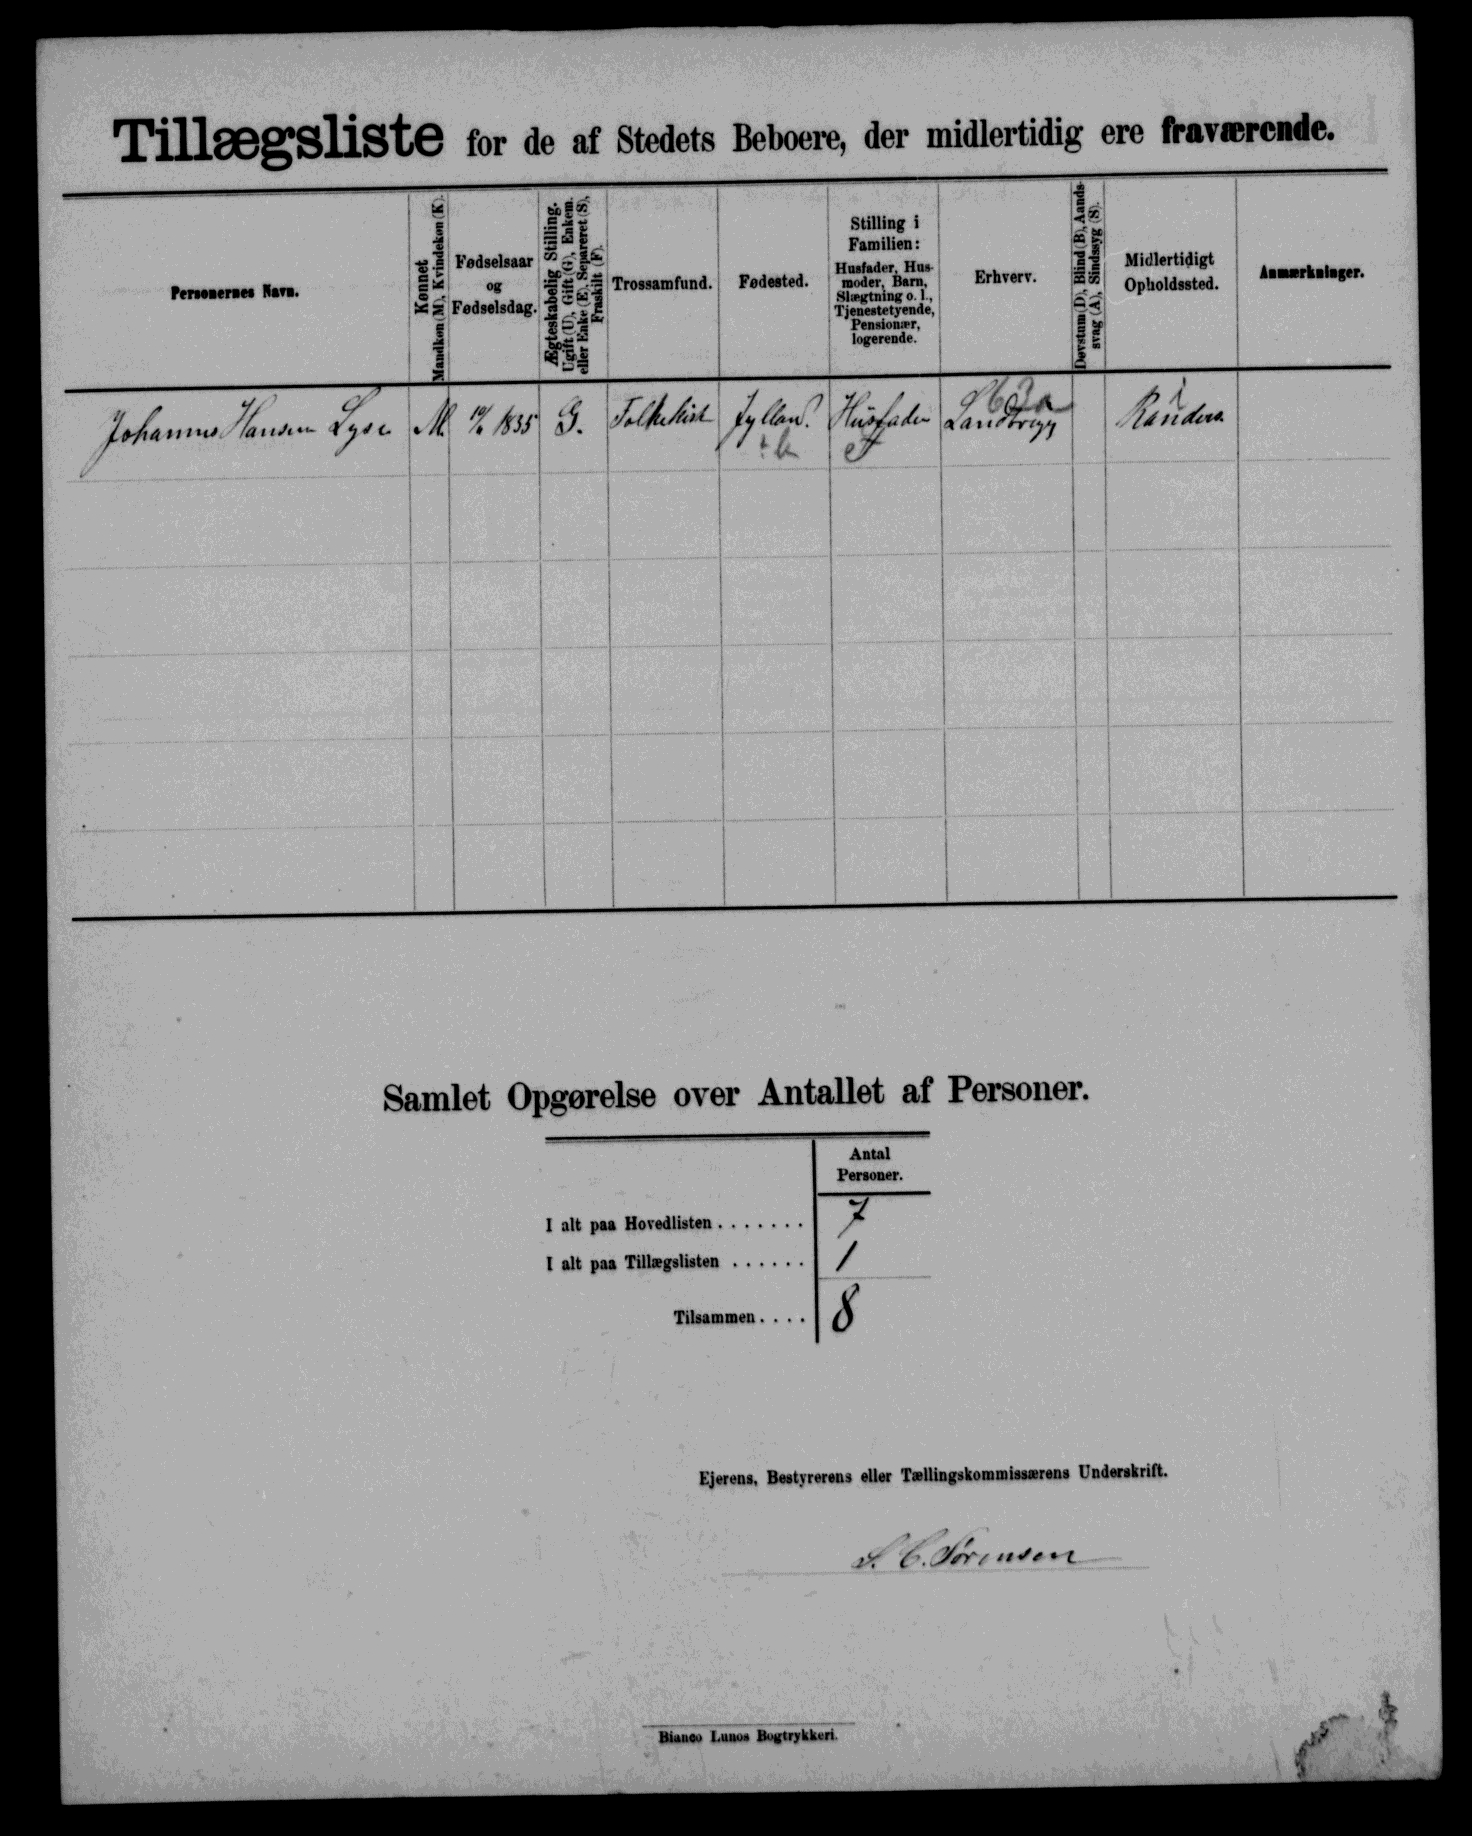 Tillægsliste for de af Stedets Beboere, der midlertidig ere fraværende.
Personernes Navn.
Kønnet
Mandkøn (M), Kvindekøn (K).
Fødselsaar
og
Fødselsdag.
Ægteskabelig Stilling.
Ugift (U), Gift (G), Enkem.
eller Enke (E), Separeret (S),
Fraskilt (F).
Trossamfund.
Fødested.
Stilling i
Familien:
Husfader, Hus-
moder, Barn,
Slægtning o. l.,
Tjenestetyende,
Pensionær,
logerende.
Erhverv.
Døvstum (D), Blind (B), Aands-
svag (A), Sindssyg (S).
Midlertidigt
Opholdssted.
Anmærkninger.
Johannes Hansen Lyse M. 1835 G. Folkekirk Jylland Husfader Randers
Samlet Opgørelse over Antallet af Personer.
Antal
Personer.
I alt paa Hovedlisten . . . . . . . 7
I alt paa Tillægslisten . . . . . . 1
Tilsammen . . . . 8
Ejerens, Bestyrerens eller Tællingskommissærens Underskrift.
S. C. Sørensen
Bianco Lunos Bogtrykkeri.